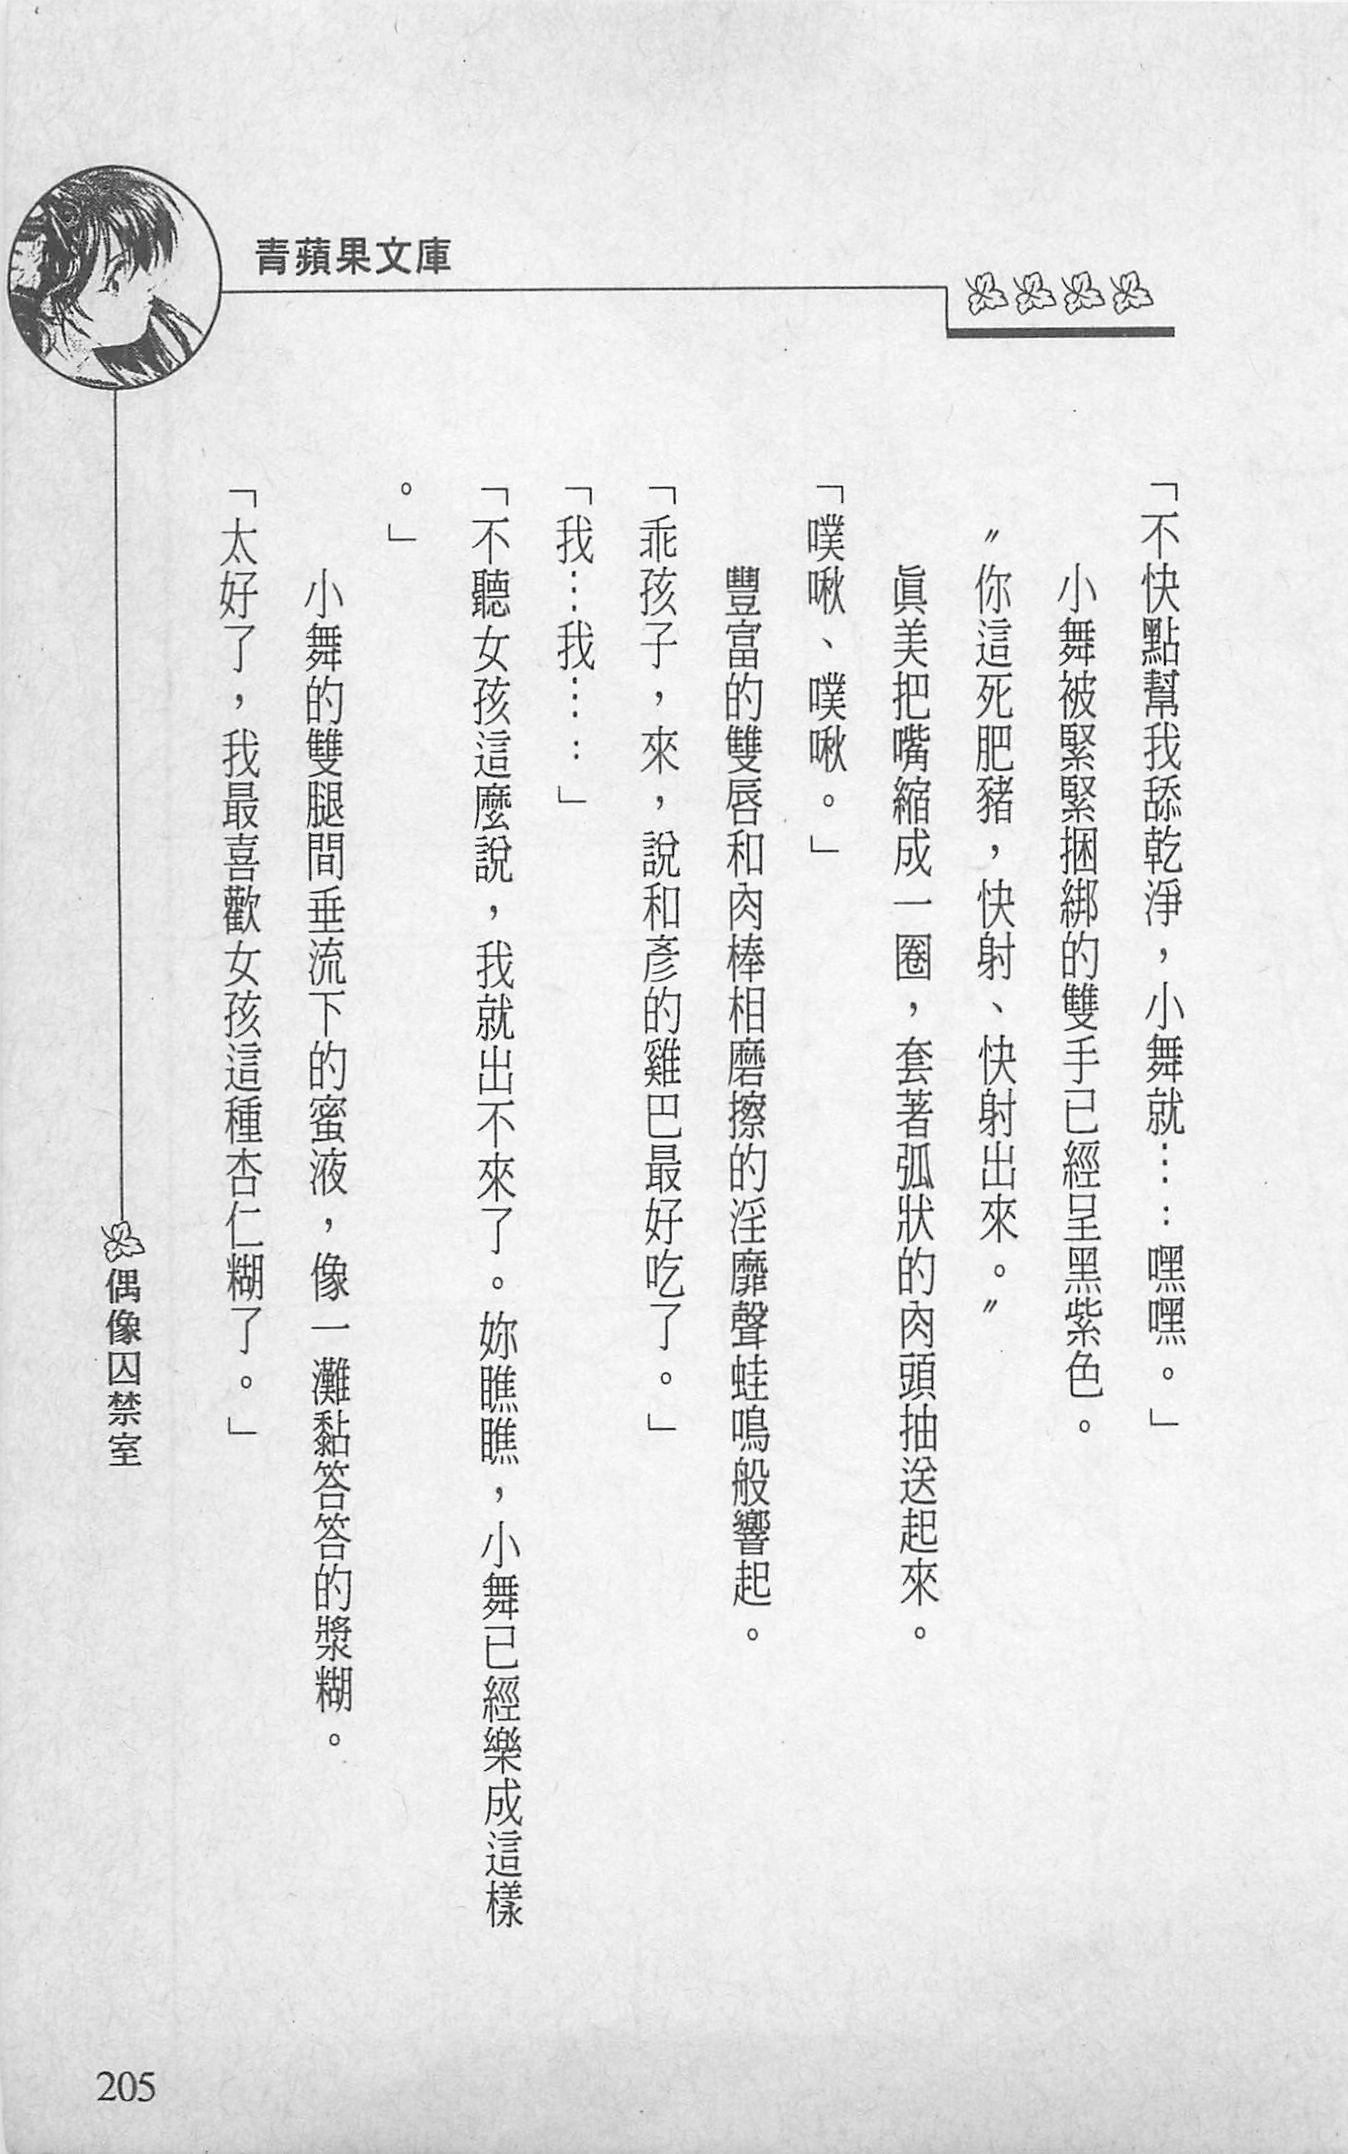 青蘋果文庫
「不快點幫我舔乾淨，小舞就⋯⋯嘿嘿。」
小舞被緊緊捆綁的雙手已經呈黑紫色。
〃你這死肥豬，快射、快射出來。〃
眞美把嘴縮成一圈，套著弧狀的肉頭抽送起來。
「噗啾、噗啾。」
豐富的雙唇和肉棒相磨擦的淫靡聲蛙鳴般響起。
「乖孩子，來，說和彥的雞巴最好吃了。」
「我⋯我⋯⋯」
「不聽女孩這麼說，我就出不來了。妳瞧瞧，小舞已經樂成這樣
。」
小舞的雙腿間垂流下的蜜液，像一灘黏答答的漿糊。
「太好了，我最喜歡女孩這種杏仁糊了。」
偶像囚禁室
205